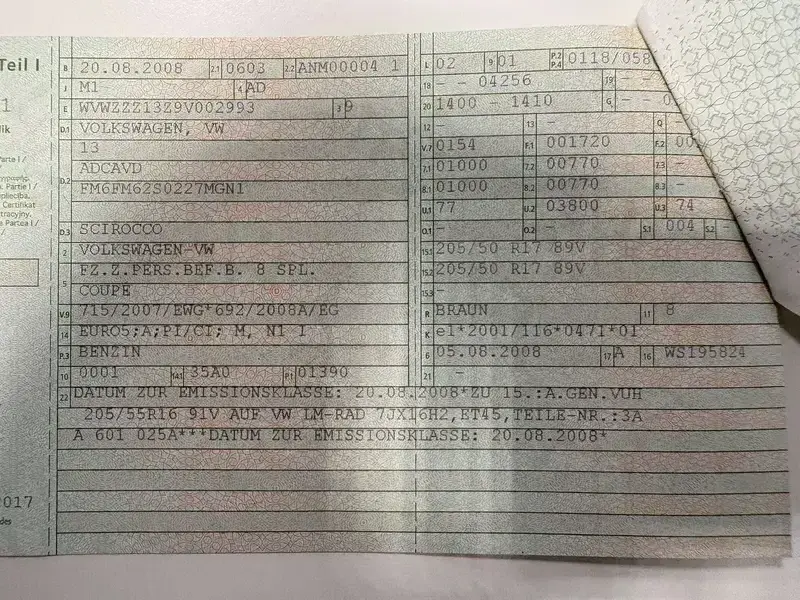 Teil I
B 20.08.2008 2.1 0603 2.2 ANM00004 1 L 02 9 01 P.2 P.4 0118/058
J M1 4 AD 18 - - 04256 19
1
E WVWZZZ13Z9V002993 3 9 20 1400 - 1410 G - -
D.1 VOLKSWAGEN, VW 12 - 13 - Q
13 V.7 0154 F.1 001720 F.2 00
ADCAVD 7.1 01000 7.2 00770 7.3 -
D.2 FM6FM62S0227MGN1 8.1 01000 8.2 00770 8.3 -
U.1 77 U.2 03800 U.3 74
D.3 SCIROCCO O.1 - O.2 - S.1 004 S.2 -
2 VOLKSWAGEN-VW 15.1 205/50 R17 89V
5 FZ.Z.PERS.BEF.B. 8 SPL. 15.2 205/50 R17 89V
COUPE 15.3 -
V.9 715/2007/EWG*692/2008A/EG R BRAUN 11 8
14 EURO5;A;PI/CI; M, N1 I K e1*2001/116*0471*01
P.3 BENZIN 6 05.08.2008 17 A 16 WS195824
10 0001 14.1 35A0 P.1 01390 21 -
22 DATUM ZUR EMISSIONSKLASSE: 20.08.2008*ZU 15.:A.GEN.VUH
205/55R16 91V AUF VW LM-RAD 7JX16H2,ET45,TEILE-NR.:3A
A 601 025A***DATUM ZUR EMISSIONSKLASSE: 20.08.2008*
2017